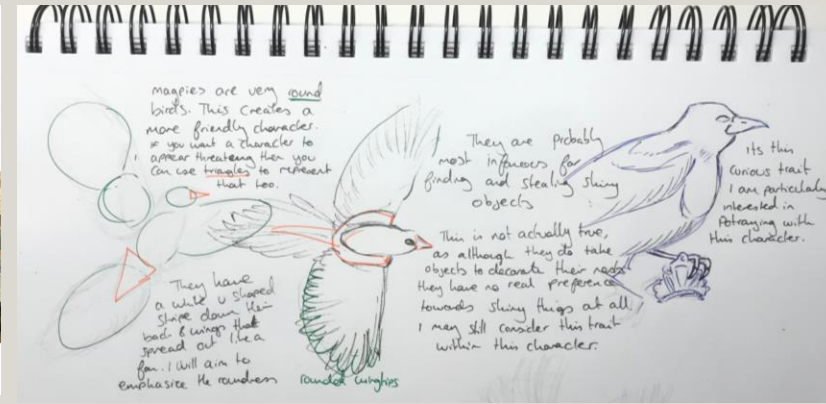 magpies are very round
birds. This creates a
more friendly character.
if you want a character to
appear threatening then you
can use triangles to represent
that too.
They have
a white U shaped
stripe down their
back & wings that
spread out like a
fan. I will aim to
emphasise the roundness
rounded wingtips
They are probably
most infamous for
finding and stealing shiny
objects
This is not actually true,
as although they do take
objects to decorate their nests
they have no real preference
towards shiny things at all
I may still consider this trait
within this character.
Its this
curious trait
I am particularly
interested in
Potraying with
this character.